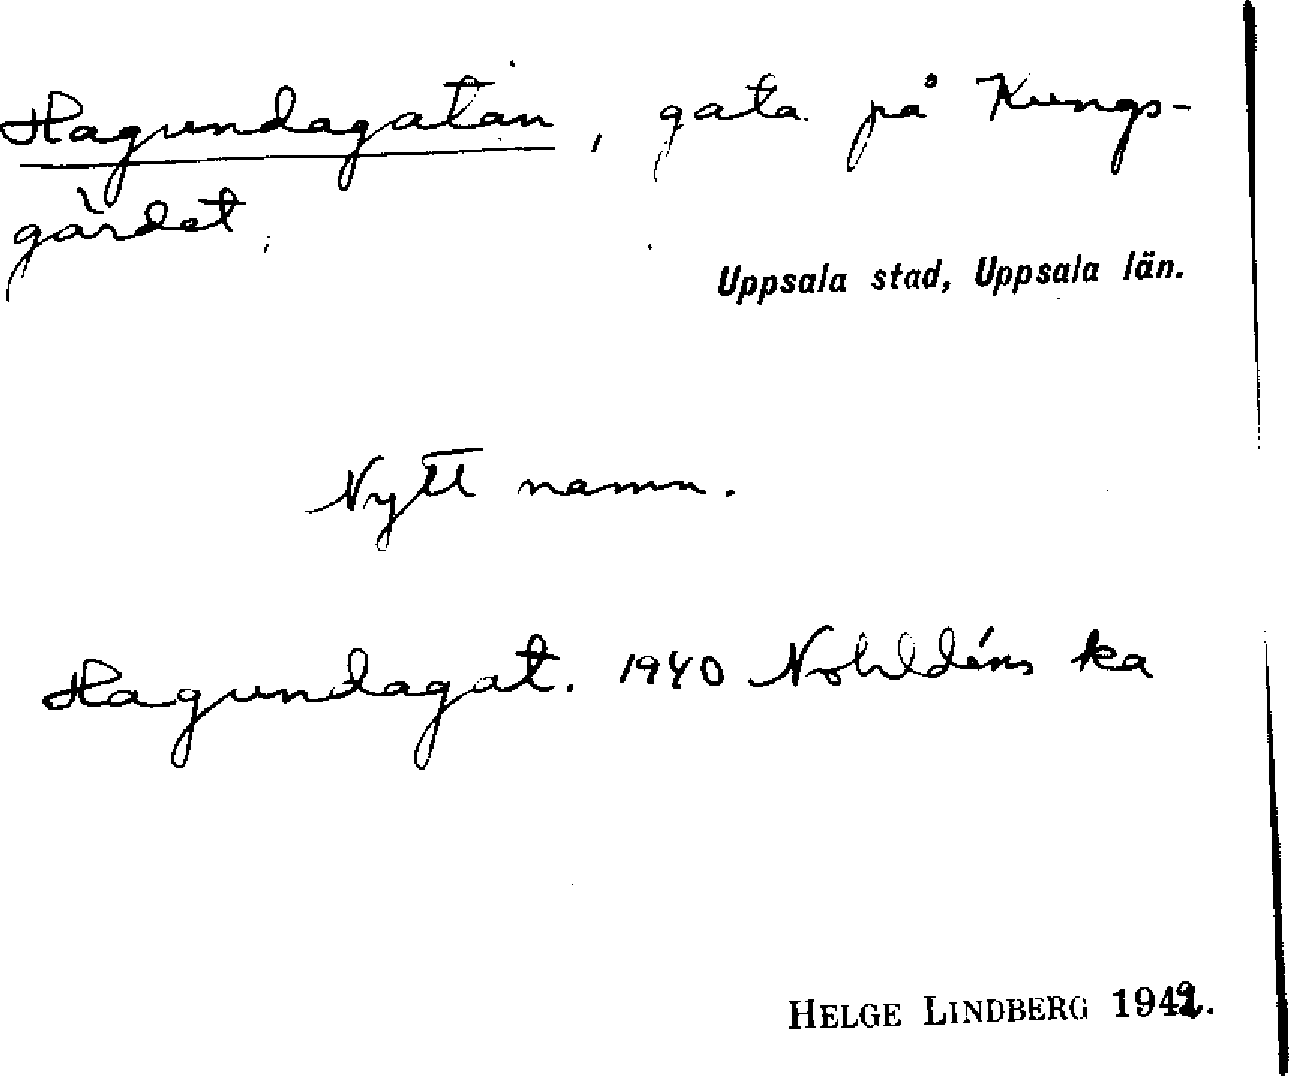 Hagundagatan, gata på Kungs-
gärdet.
Uppsala stad, Uppsala län.
Nytt namn.
Hagundagat. 1940 Nohldéns ka
HELGE LINDBERG 1942.